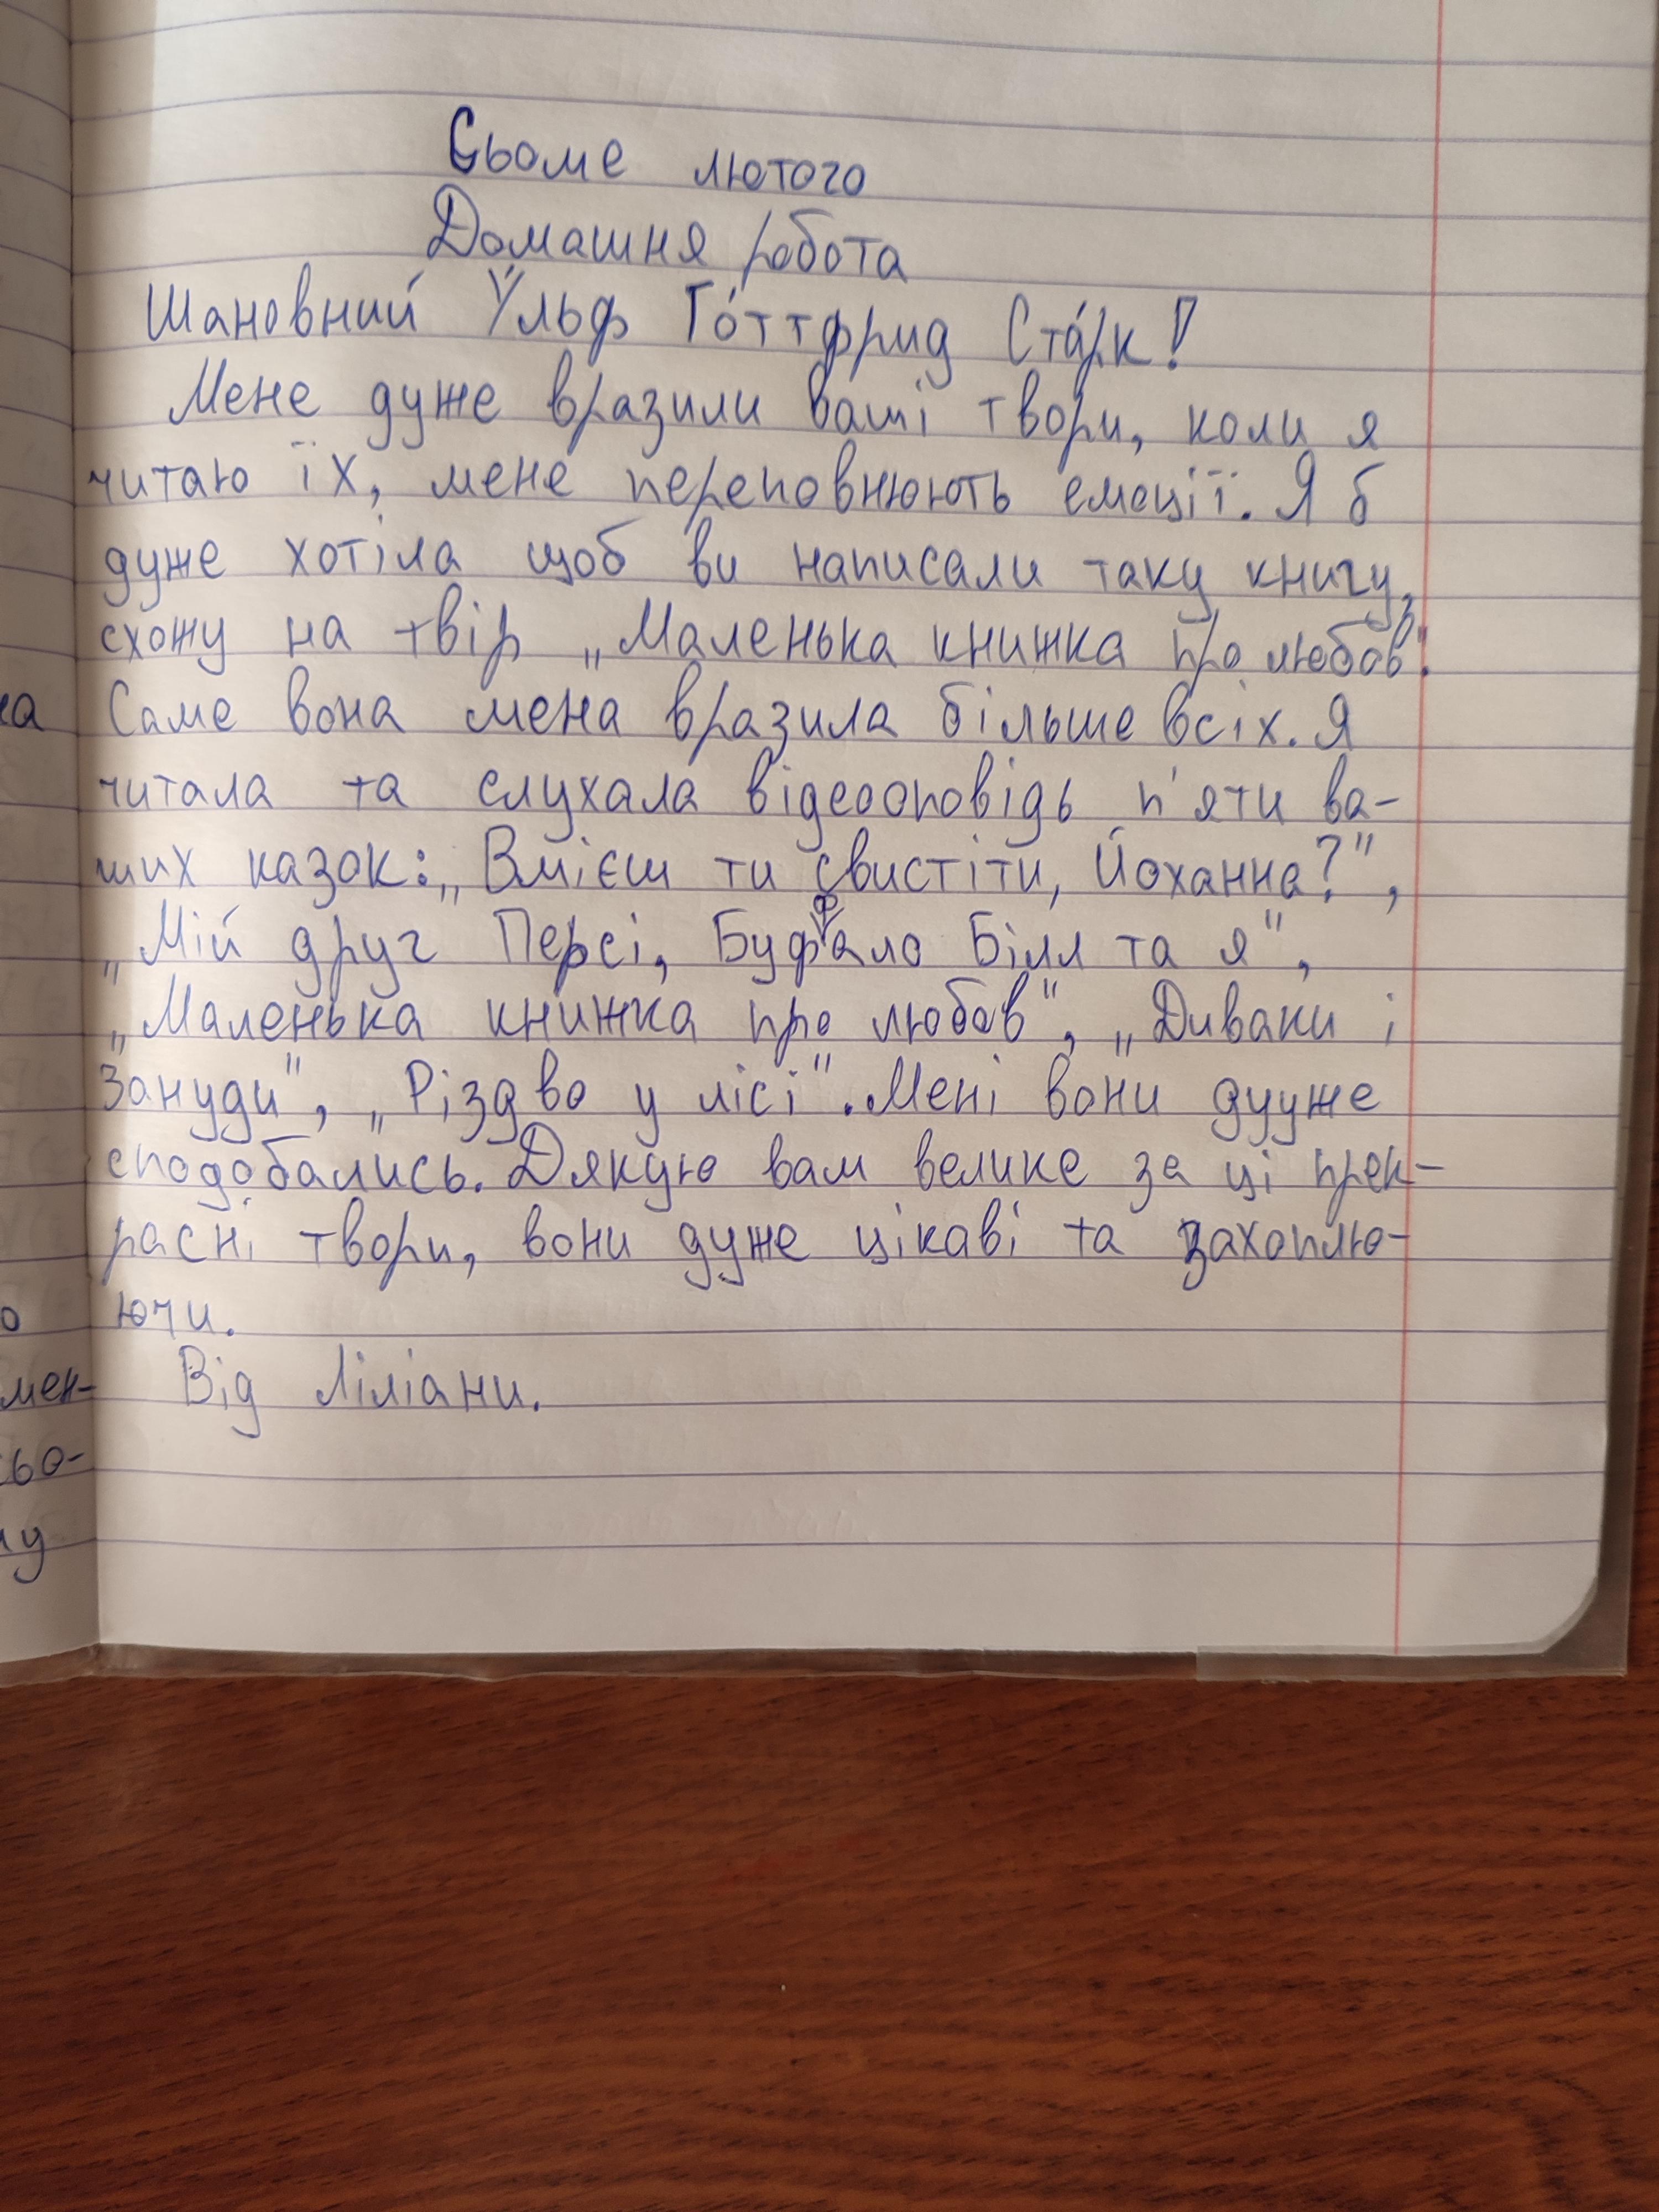 Сьоме лютого
Домашня робота
Шановний У́льф Го́ттфрид Ста́рк!
Мене дуже вразили ваші твори, коли я
читаю їх, мене переповнюють емоції. Я б
дуже хотіла щоб ви написали таку книгу,
схожу на твір „Маленька книжка про любов".
Саме вона мена вразила більше всіх. Я
читала та слухала відеооповідь п'яти ва-
ших казок: „Вмієш ти свистіти, Йоханна?",
„Мій друг Персі, Буффало Білл та я",
„Маленька книжка про любов", „Диваки і
Зануди", „Різдво у лісі". Мені вони дууже
сподобались. Дякую вам велике за ці прек-
расні твори, вони дуже цікаві та захоплю-
ючи.
Від Ліліани.